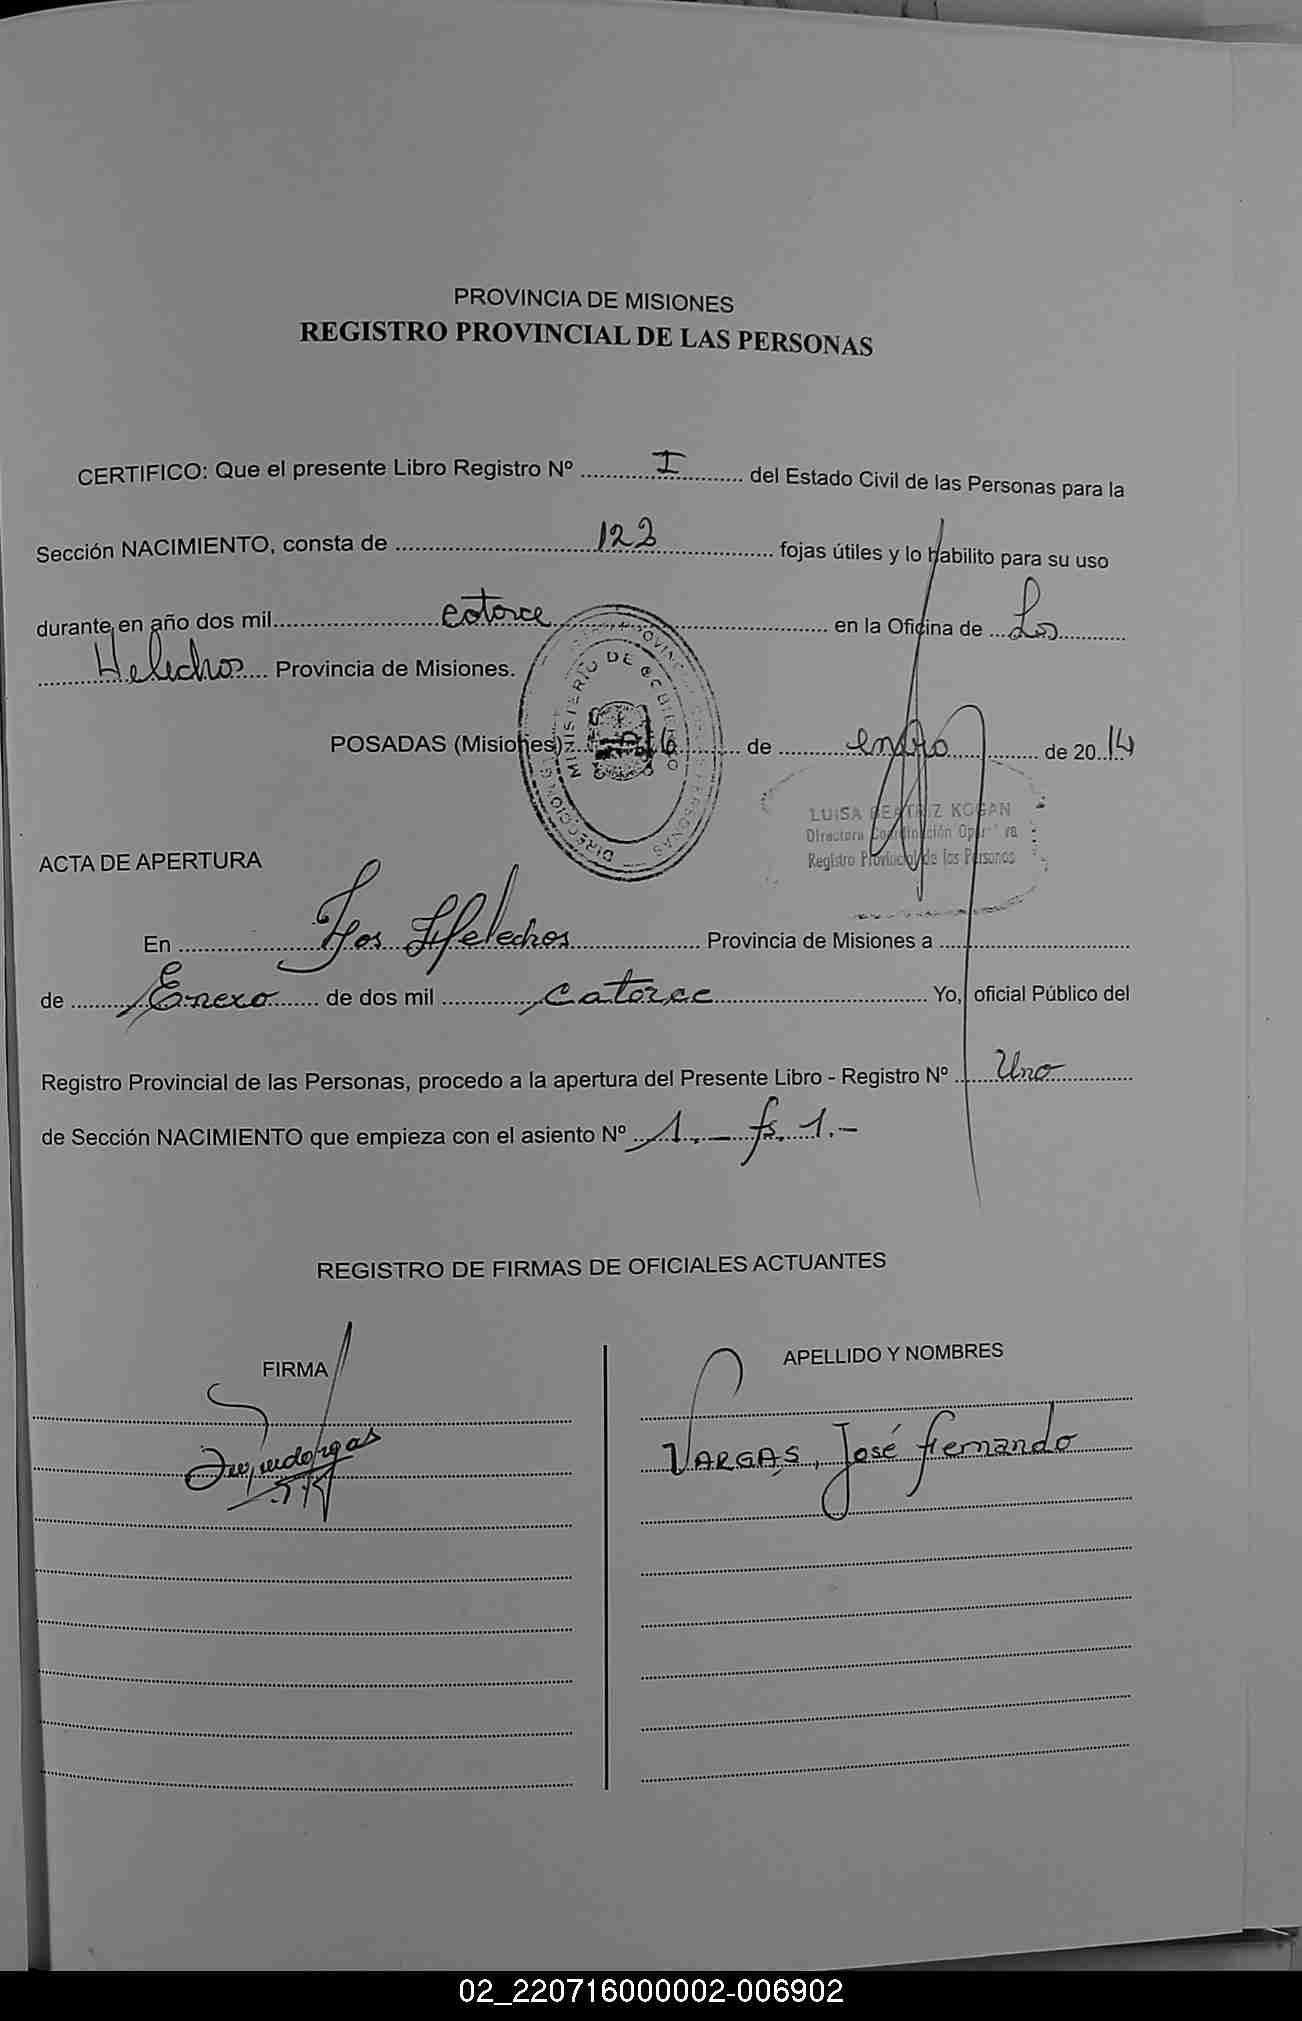 PROVINCIA DE MISIONES
REGISTRO PROVINCIAL DE LAS PERSONAS
CERTIFICO: Que el presente Libro Registro Nº I del Estado Civil de las Personas para la
Sección NACIMIENTO, consta de 122 fojas útiles y lo habilito para su uso
durante en año dos mil catorce en la Oficina de Los
Helechos Provincia de Misiones.
POSADAS (Misiones) 16 de enero de 2014
MINISTERIO DE GOBIERNO
LUISA BEATRIZ KOGAN
Directora Coordinación
Registro Provincial de las Personas
ACTA DE APERTURA
En Los Helechos Provincia de Misiones a
de Enero de dos mil catorce Yo, oficial Público del
Registro Provincial de las Personas, procedo a la apertura del Presente Libro - Registro Nº Uno
de Sección NACIMIENTO que empieza con el asiento Nº 1.- fs. 1.-
REGISTRO DE FIRMAS DE OFICIALES ACTUANTES
FIRMA
APELLIDO Y NOMBRES
VARGAS, José Fernando
02_220716000002-006902